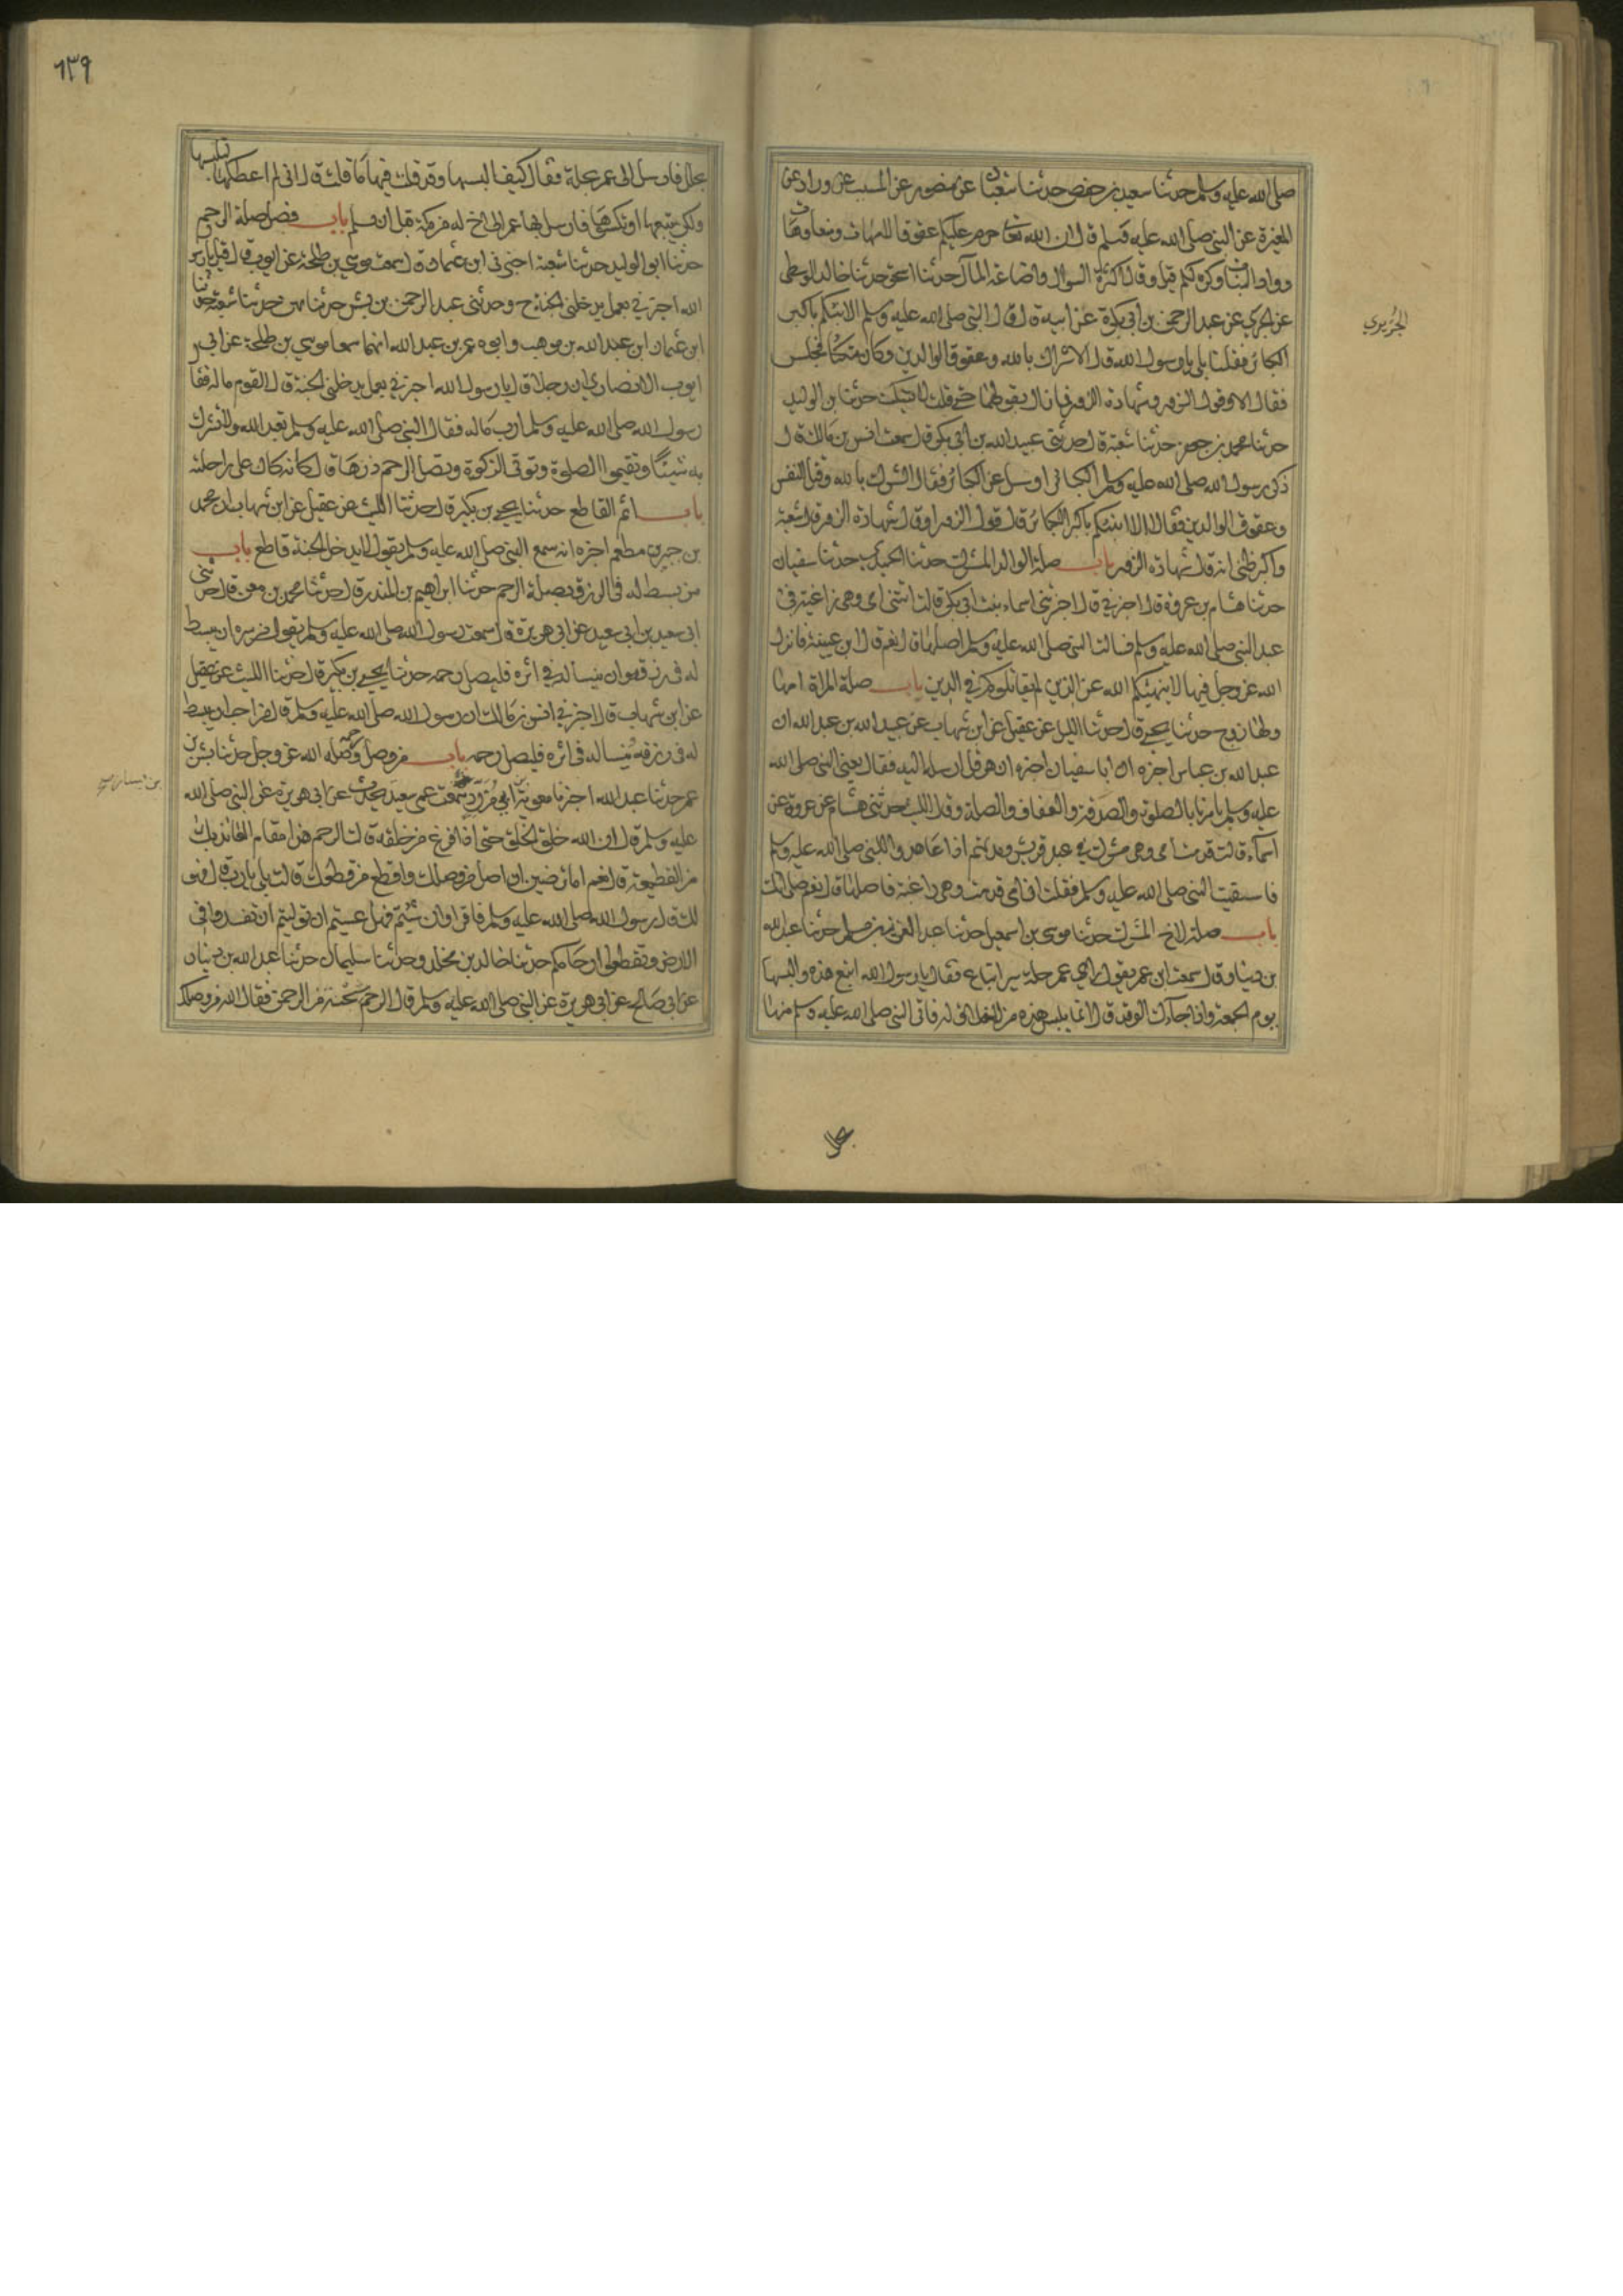 صلى الله عليه وسلم حدثنا سعيد بن حفص حدثنا شعبان عن منصور عن المسيب عن وراد عن
المغيرة عن النبي صلى الله عليه وسلم قال ان الله تعالى حرم عليكم عقوق الامهات ومنعا وهات
وواد البنات وكره لكم قيل وقال كثرة السوال واضاعة المال حدثنا اسحق حدثنا خالد الوسطى
عن الجريري عن عبد الرحمن بن ابي بكرة عن ابيه قال قال النبي صلى الله عليه وسلم الا انبئكم باكبر
الجريري
الكبائر فقلنا بلى يا رسول الله قال الاشراك بالله وعقوق الوالدين وكان متكئا فجلس
فقال الا وقول الزور وشهادة الزور فما زال يقولها حتى قلت لا يسكت حدثنا بن الوليد
حدثنا محمد بن جعفر حدثنا شعبة قال حدثني عبيد الله بن ابي بكر قال سمعت انس بن مالك قال
ذكر رسول الله صلى الله عليه وسلم الكبائر او سئل عن الكبائر فقال الشرك بالله وقتل النفس
وعقوق الوالدين فقال الا انبئكم باكبر الكبائر قال قول الزور او قال شهادة الزور قال شعبة
واكبر ظني انه قال شهادة الزور باب صلة الوالد المشرك حدثنا الحميدي حدثنا سفيان
حدثنا هشام بن عروة قال اخبرني قال اخبرتني اسماء بنت ابي بكر قالت اتتني امي وهي راغبة في
عهد النبي صلى الله عليه وسلم فسالت النبي صلى الله عليه وسلم اصلها قال نعم قال ابن عيينة فانزل
الله عز وجل فيها لا ينهيكم الله عن الذين لم يقاتلوكم في الدين باب صلة المراة امها
ولها زوج حدثنا يحيى قال حدثنا الليل عن عقيل عن ابن شهاب عن عبيد الله بن عبد الله ان
عبد الله بن عباس اخبره ان ابا سفيان اخبره ان هرقل ارسل اليه فقال يعني النبي صلى الله
عليه وسلم يامرنا بالصلوة والصدقة والعفاف والصلة وقال الليث حدثني هشام عن عروة عن
اسماء قالت قدمت امي وهي مشركة في عهد قريش ومدتهم اذا عاهدوا النبي صلى الله عليه وسلم
فاستفتيت النبي صلى الله عليه وسلم فقلت ان امي قدمت وهي راغبة فاصلها قال نعم صلي امك
باب صلة الاخ المشرك حدثنا موسى بن اسمعيل حدثنا عبد العزيز بن مسلم حدثنا عبد الله
بن دينار قال سمعت ابن عمر يقول راى عمر حلة سيرا تباع فقال يا رسول الله ابتع هذه والبسها
يوم الجمعة واذا جاءك الوفد قال انما يلبس هذه من لا خلاق له فاتى النبي صلى الله عليه وسلم منها
٦٣٩
بحلل فارسل الى عمر بحلة فقال كيف البسها وقد قلت فيها ما قلت قال اني لم اعطكها لتلبسها
ولكن تبيعها او تكسوها فارسل بها عمر الى اخ له من مكة قبل ان يسلم باب فضل صلة الرحم
حدثنا ابو الوليد حدثنا شعبة اخبرني ابن عثمان قال سمعت موسى بن طلحة عن ايوب قال قيل يا رسول
الله اخبرني بعمل يدخلني الجنة ح وحدثني عبد الرحمن بن بشر حدثنا بهز حدثنا شعبة حدثنا
ابن عثمان ابن عبد الله بن موهب وابوه عمر بن عبد الله انهما سمعا موسى بن طلحة عن ابي
ايوب الانصاري ان رجلا قال يا رسول الله اخبرني بعمل يدخلني الجنة قال القوم ما له فقال
رسول الله صلى الله عليه وسلم ارب ما له فقال النبي صلى الله عليه وسلم تعبد الله ولا تشرك
به شيئا وتقيموا الصلوة وتوتي الزكوة وتصل الرحم ذرها قال كانه كان على راحلته
باب اثم القاطع حدثنا يحيى بن بكير قال حدثنا الليث عن عقيل عن ابن شهاب ان محمد
بن جبير بن مطعم اخبره انه سمع النبي صلى الله عليه وسلم يقول لا يدخل الجنة قاطع باب
من بسط له في الرزق بصلة الرحم حدثنا ابراهيم بن المنذر قال حدثنا محمد بن معن قال حدثني
ابي سعيد بن ابي سعيد عن ابي هريرة قال سمعت رسول الله صلى الله عليه وسلم يقول من سره ان يبسط
له في رزقه وان ينسا له في اثره فليصل رحمه حدثنا يحيى بن بكير قال حدثنا الليث عن عقيل
عن ابن شهاب قال اخبرني انس بن مالك ان رسول الله صلى الله عليه وسلم قال من احب ان يبسط
له في رزقه وينسا له في اثره فليصل رحمه باب من وصل رحمه وصله الله عز وجل حدثنا بشر بن
عمر حدثنا عبد الله اخبرنا معوية بن ابي مزرد سمعت عمي سعيد يحدث عن ابي هريرة عن النبي صلى الله
عليه وسلم قال ان الله خلق الخلق حتى اذا فرغ من خلقه قالت الرحم هذا مقام العائذ بك
من القطيعة قال نعم اما ترضين ان اصل من وصلك واقطع من قطعك قالت بلى يا رب قال فهو
لك قال رسول الله صلى الله عليه وسلم فاقراوا ان شئتم فهل عسيتم ان توليتم ان تفسدوا في
الارض وتقطعوا ارحامكم حدثنا خالد بن مخلد وحدثنا سليمان حدثنا عبد الله بن دينار
عن ابي صالح عن ابي هريرة عن النبي صلى الله عليه وسلم قال الرحم شجنة من الرحمن فقال الله من وصلك